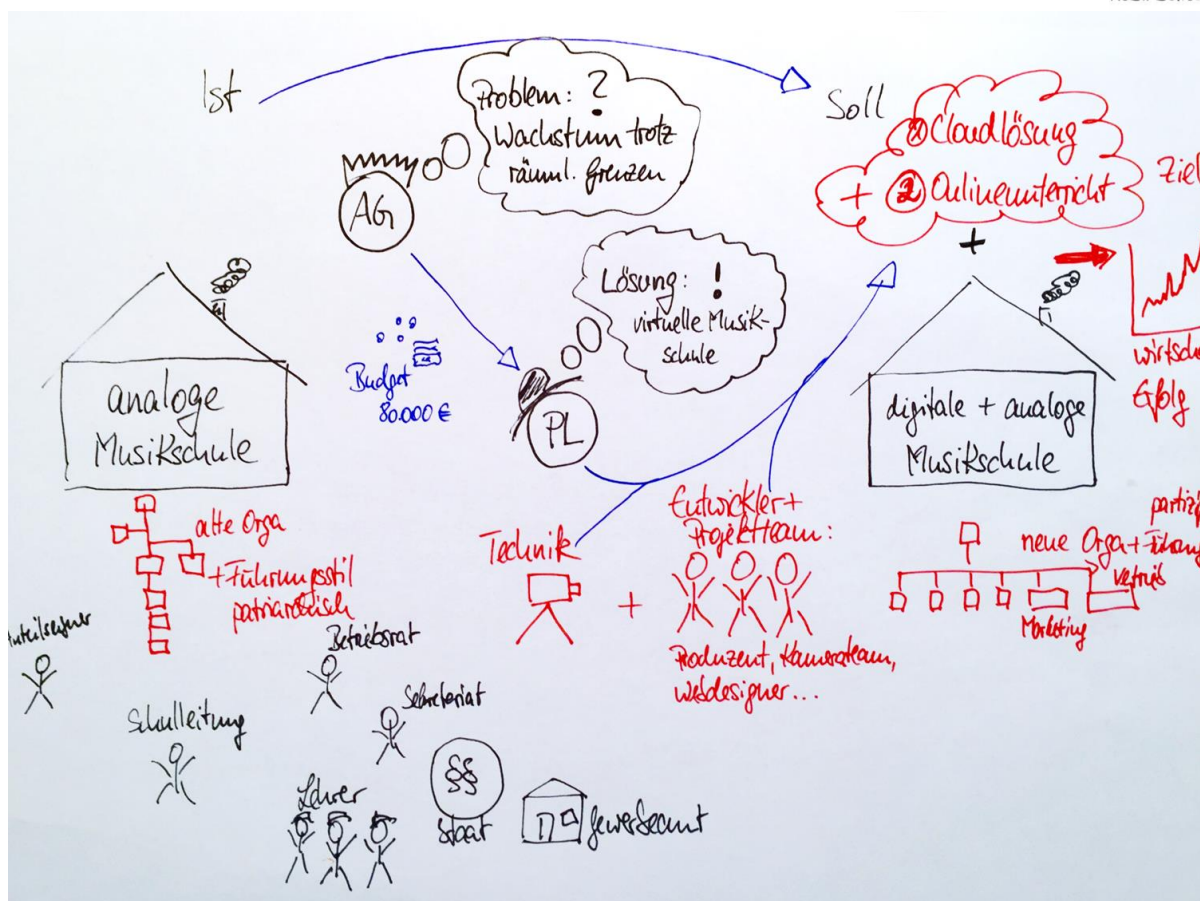 Ist
Problem: ?
Wachstum trotz
räuml. Grenzen
AG
Soll
Cloudlösung
+ 2 Onlineunterricht
+
Ziel
Lösung: !
virtuelle Musik-
schule
Budget
80.000 €
PL
analoge
Musikschule
digitale + analoge
Musikschule
wirtsch
Erfolg
alte Orga
+ Führungsstil
patriarchisch
Technik
+
Entwickler +
Projektteam:
Produzent, Kamerateam,
Webdesigner...
partizi
neue Orga + Führung
Vertrieb
Marketing
Anteilseigner
Betriebsrat
Schulleitung
Sekretariat
Lehrer
§§
Staat
Gewerbeamt